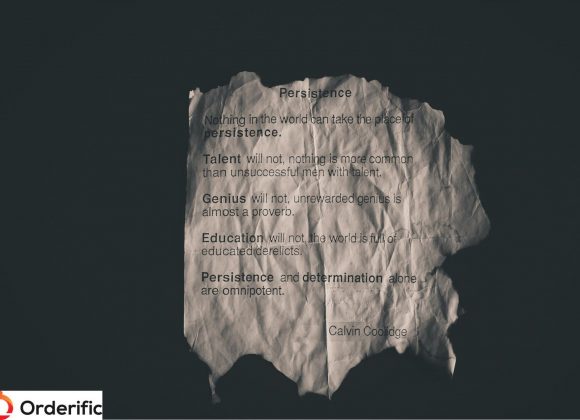 Persistence
Nothing in the world can take the place of
persistence.
Talent will not, nothing is more common
than unsuccessful men with talent.
Genius will not, unrewarded genius is
almost a proverb.
Education will not, the world is full of
educated derelicts.
Persistence and determination alone
are omnipotent.
Calvin Coolidge
Orderific